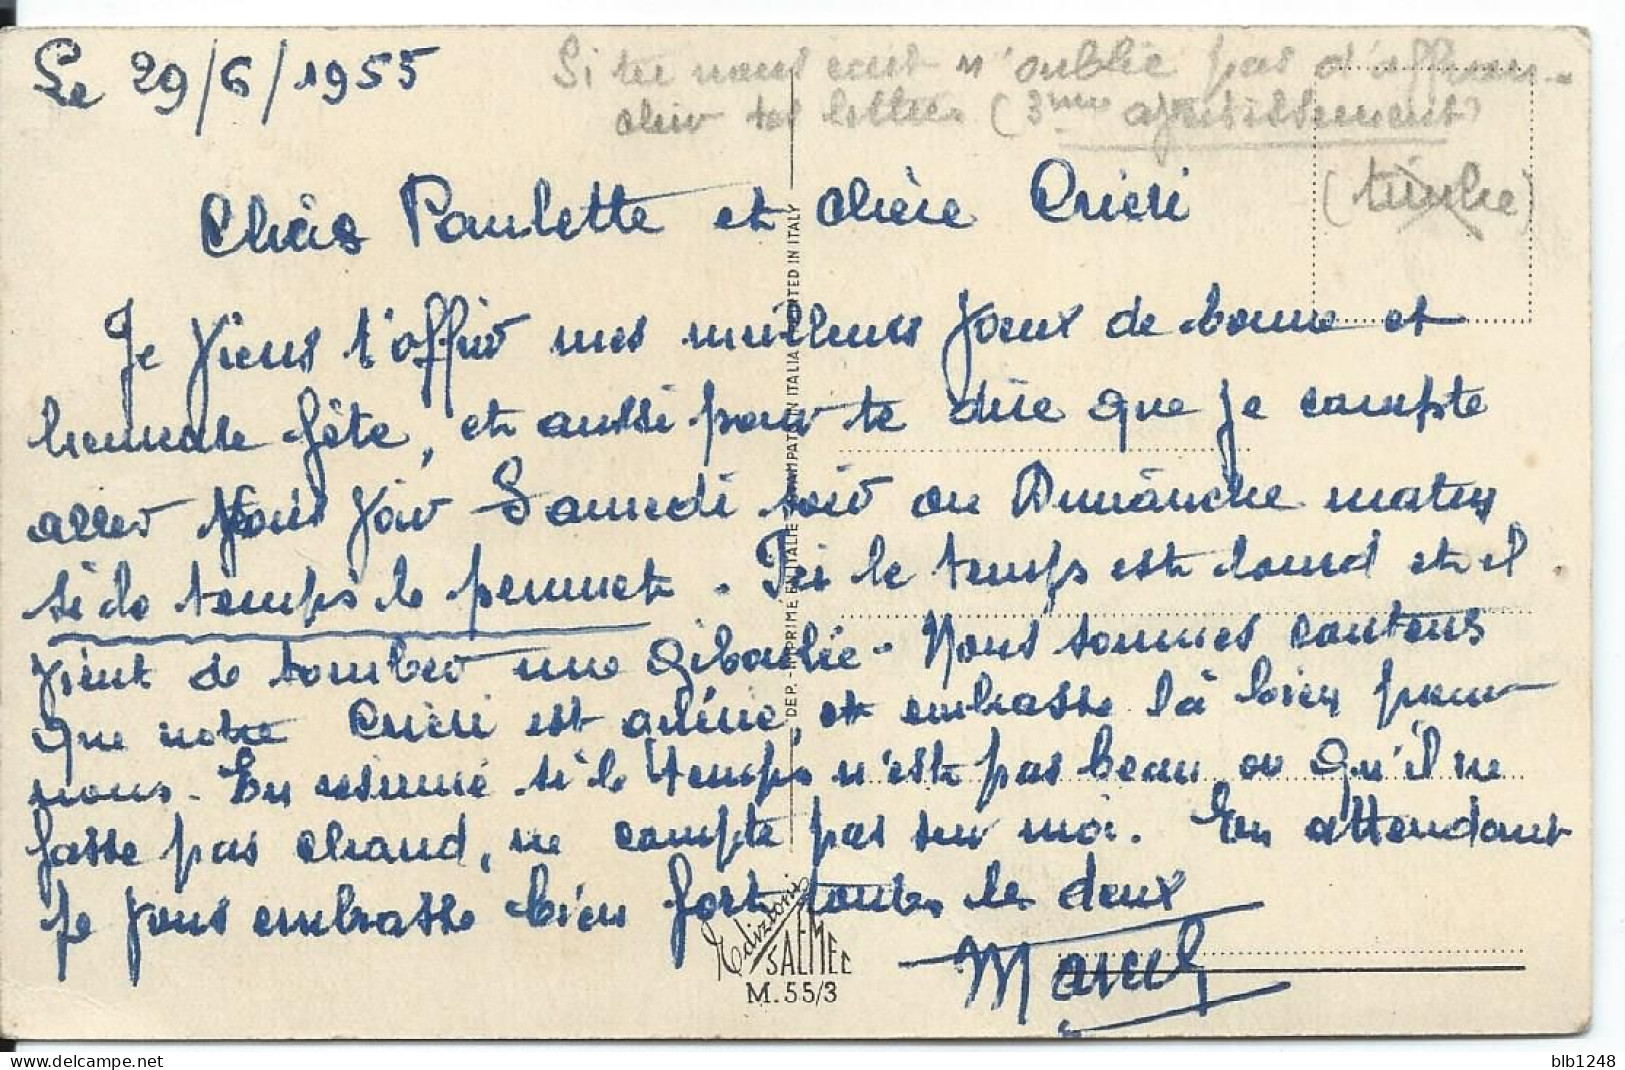 Le 29/6/1955
Si tu nous ecrit n'oublie pas d'affran-
chir tes lettres (3ème avertissement)
(timbre)
Chère Paulette et chère Cricri
Je viens t'offrir mes meilleurs voeux de bonne et
heureuse fête, et aussi pour te dire que je compte
aller vous voir Samedi soir ou Dimanche matin
si le temps le permet. Ici le temps est lourd et il
vient de tomber une giboulée - Nous sommes contents
que notre Cricri est arrivée, et embrasse là bien pour
nous. En résumé si le temps n'est pas beau ou qu'il ne
fasse pas chaud, ne compte pas sur moi. En attendant
je vous embrasse bien fort toutes les deux
Marcel
DEP. - IMPRIME EN ITALIE STAMPATO IN ITALIA PRINTED IN ITALY
Edizioni
SAEMEC
M. 55/3
blb1248